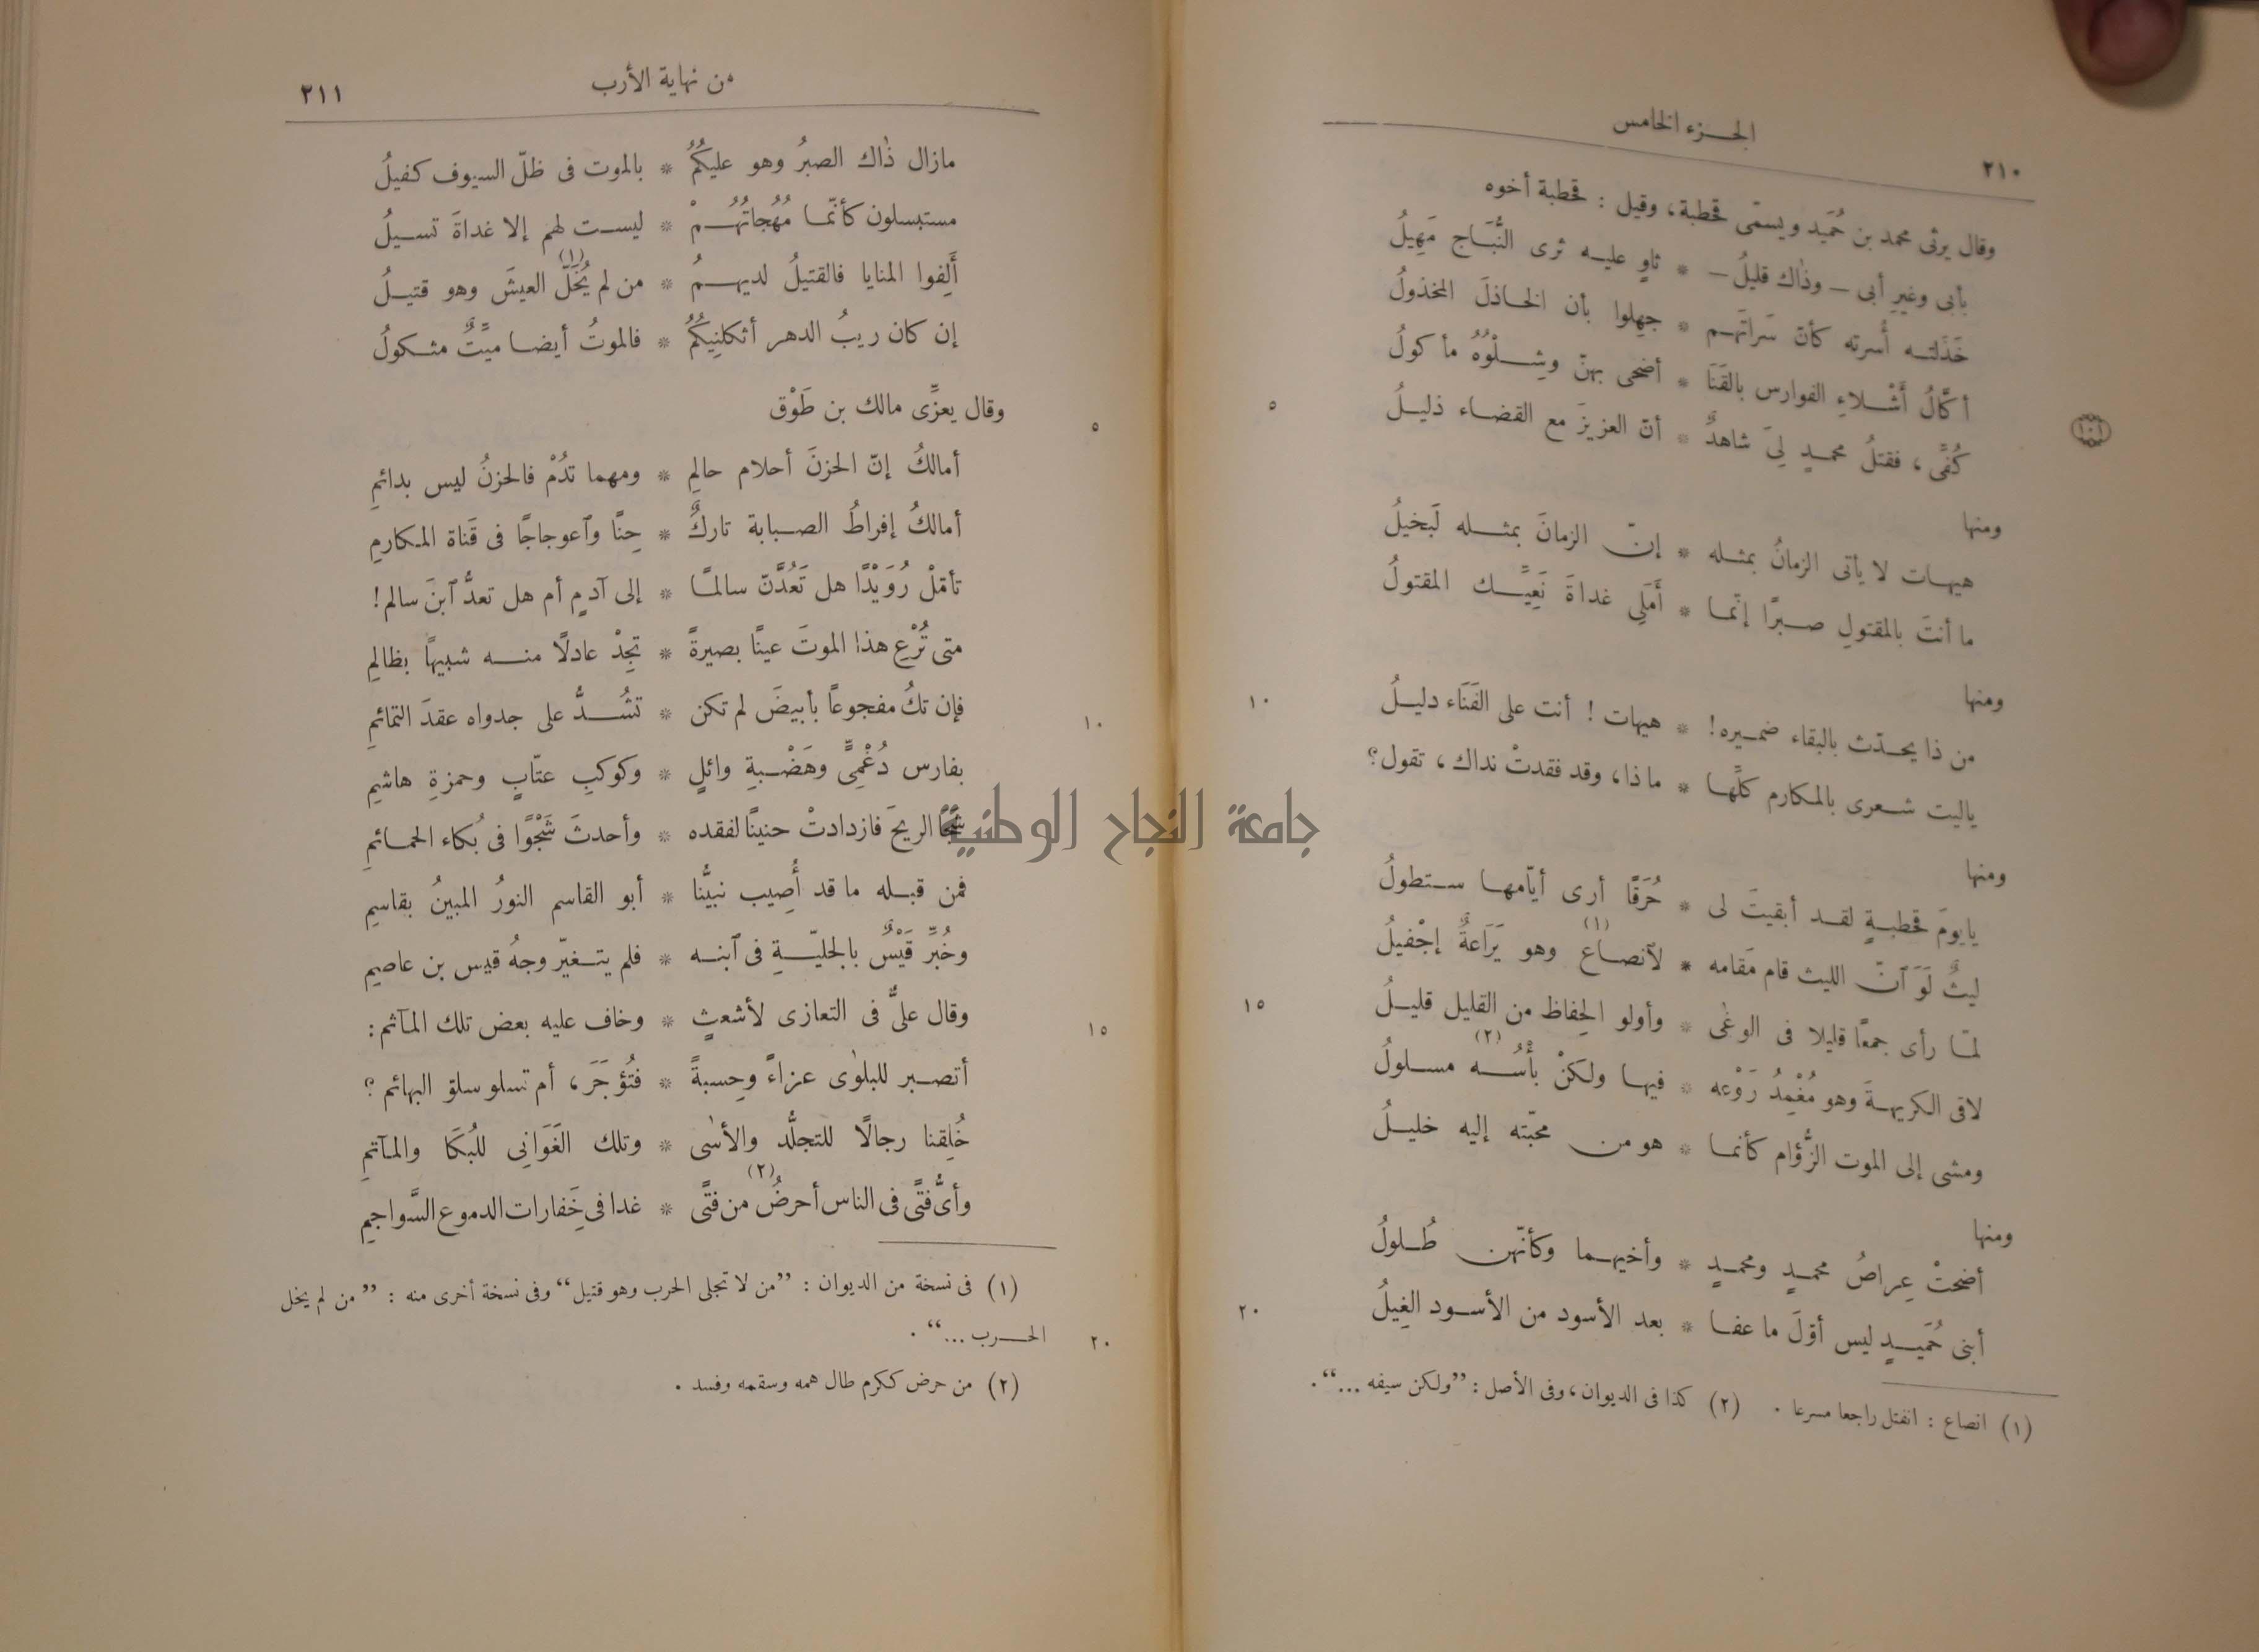 الجزء الخامس
٢١٠
وقال يرثى محمد بن حُمَيد ويسمّى قحطبة، وقيل : قحطبة أخوه
بأبى وغيرِ أبى — وذٰاك قليلُ — * ثاوٍ عليه ثرى النُّبَاج مَهِيلُ
خَذَلته أُسرته كأنّ سَراتَهم * جهِلوا بأن الخاذلَ المخذولُ
أكّالُ أَشْلاءِ الفوارس بالقَنَا * أضحى بهنّ وشِلْوُهُ مأكولُ
٥
كُفِّى، فقتلُ محمدٍ لِىَ شاهدٌ * أنّ العزيزَ مع القضاء ذليلُ
ومنها
هيهات لا يأتى الزمانُ بمثله * إنّ الزمانَ بمثله لَبخيلُ
ما أنتَ بالمقتولِ صبرًا إنّما * أَمَلِى غداةَ نَعِيِّك المقتولُ
ومنها
من ذا يحدّث بالبقاء ضميره! * هيهات ! أنت على الفَنَاء دليلُ
١٠
ياليت شعرى بالمكارم كلِّها * ماذا، وقد فقدتْ نداك، تقول؟
ومنها
يايومَ قحطبةٍ لقد أبقيتَ لى * حُرَقًا أرى أيّامها ستطولُ
ليثٌ لَوَ آنّ الليث قام مَقامه * لآنصاع (١) وهو يَرَاعةٌ إجْفيلُ
لمّا رأى جمعًا قليلا فى الوغٰى * وأولو الحِفاظ من القليل قليلُ
١٥
لاقى الكريهةَ وهو مُغْمِدُ رَوْعه * فيها ولكنْ بأْسُه (٢) مسلولُ
ومشى إلى الموت الزُّؤام كأنما * هو من محبّته إليه خليلُ
ومنها
أضحتْ عِراصُ محمدٍ ومحمدٍ * وأخيهما وكأنّهن طُلولُ
أبنى حُمَيدٍ ليس أوّلَ ما عفا * بعد الأسود من الأسود الغِيلُ
٢٠
(١) انصاع : انفتل راجعا مسرعا . (٢) كذا فى الديوان، وفى الأصل : ”ولكن سيفه ...“.
من نهاية الأرب
٢١١
مازال ذٰاك الصبرُ وهو عليكُمُ * بالموت فى ظلّ السيوف كفيلُ
مستبسلون كأنّما مُهُجاتُهُمْ * ليست لهم إلا غداةَ تسيلُ
أَلِفوا المنايا فالقتيلُ لديهمُ * من لم يُخَلَّ (١) العيشَ وهو قتيلُ
إن كان ريبُ الدهر أثكلنِيكُمُ * فالموتُ أيضا ميِّتٌ مثكولُ
وقال يعزِّى مالك بن طَوْق
٥
أمالكُ إنّ الحزنَ أحلام حالمِ * ومهما تدُمْ فالحزنُ ليس بدائمِ
أمالكُ إفراطُ الصبابة تاركٌ * حِنًا وٱعوجاجًا فى قَناة المكارمِ
تأمّلْ رُوَيْدًا هل تَعُدّنّ سالمًا * إلى آدمٍ أم هل تعدُّ ٱبنَ سالم!
متى تُرْعِ هذا الموتَ عينًا بصيرةً * تجِدْ عادلًا منه شبيهًا بظالمِ
فإن تكُ مفجوعًا بأبيضَ لم تكن * تشُدُّ على جدواه عقدَ التمائمِ
١٠
بفارس دُعْمِىٍّ وهَضْبةِ وائلٍ * وكوكبِ عتّابٍ وحمزةِ هاشمِ
شجًا الريحَ فازدادتْ حنينًا لفقده * وأحدثَ شَجْوًا فى بُكاء الحمائمِ
فمن قبله ما قد أُصِيب نبيُّنا * أبو القاسم النورُ المبينُ بقاسمِ
وخُبِّر قَيْسٌ بالجليّةِ فى ٱبنه * فلم يتغيّر وجهُ قيس بن عاصمِ
وقال علىٌّ فى التعازى لأشعثٍ * وخاف عليه بعض تلك المآثم :
١٥
أتصبر للبلوٰى عزاءً وحِسبةً * فتُؤجَرَ، أم تسلو سلوّ البهائم ؟
خُلِقنا رجالًا للتجلُّد والأسٰى * وتلك الغَوَانِى للبُكَا والمآتمِ
وأىُّ فتًى فى الناس أحرضُ (٢) من فتًى * غدا فى خِفارات الدموع السَّواجمِ
(١) فى نسخة من الديوان : ”من لا تجلى الحرب وهو قتيل“ وفى نسخة أخرى منه : ”من لم يخل
الحرب ...“ .
٢٠
(٢) من حرض ككرم طال همه وسقمه وفسد .
جامعة النجاح الوطنية